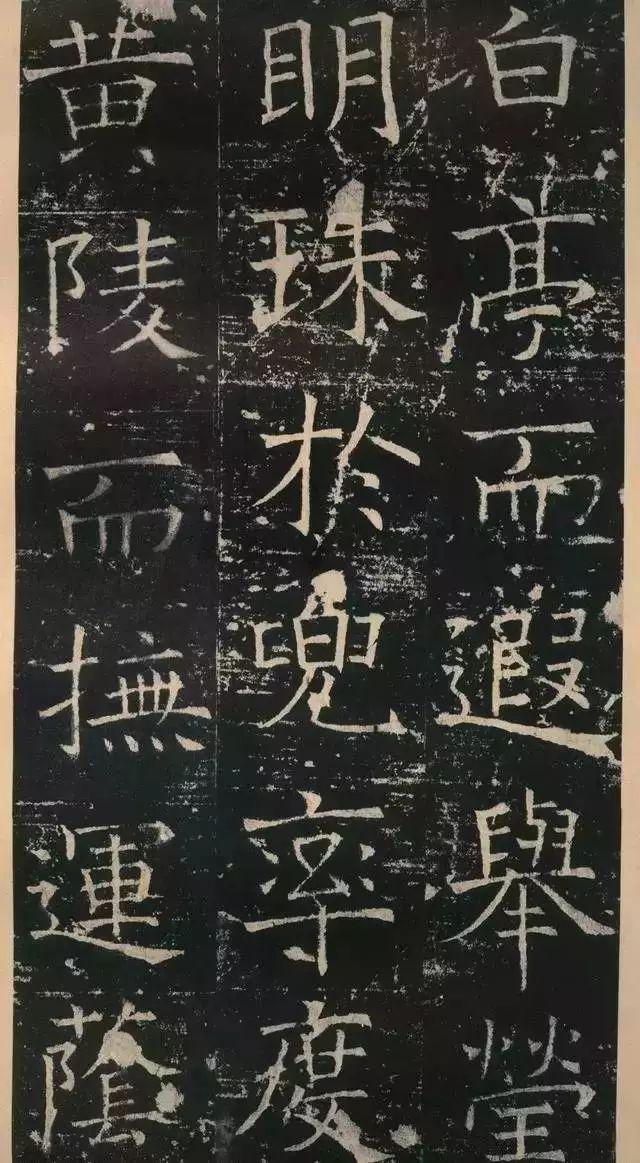 白亭而遐舉瑩
明珠於兜率度
黃陵而撫運蔭